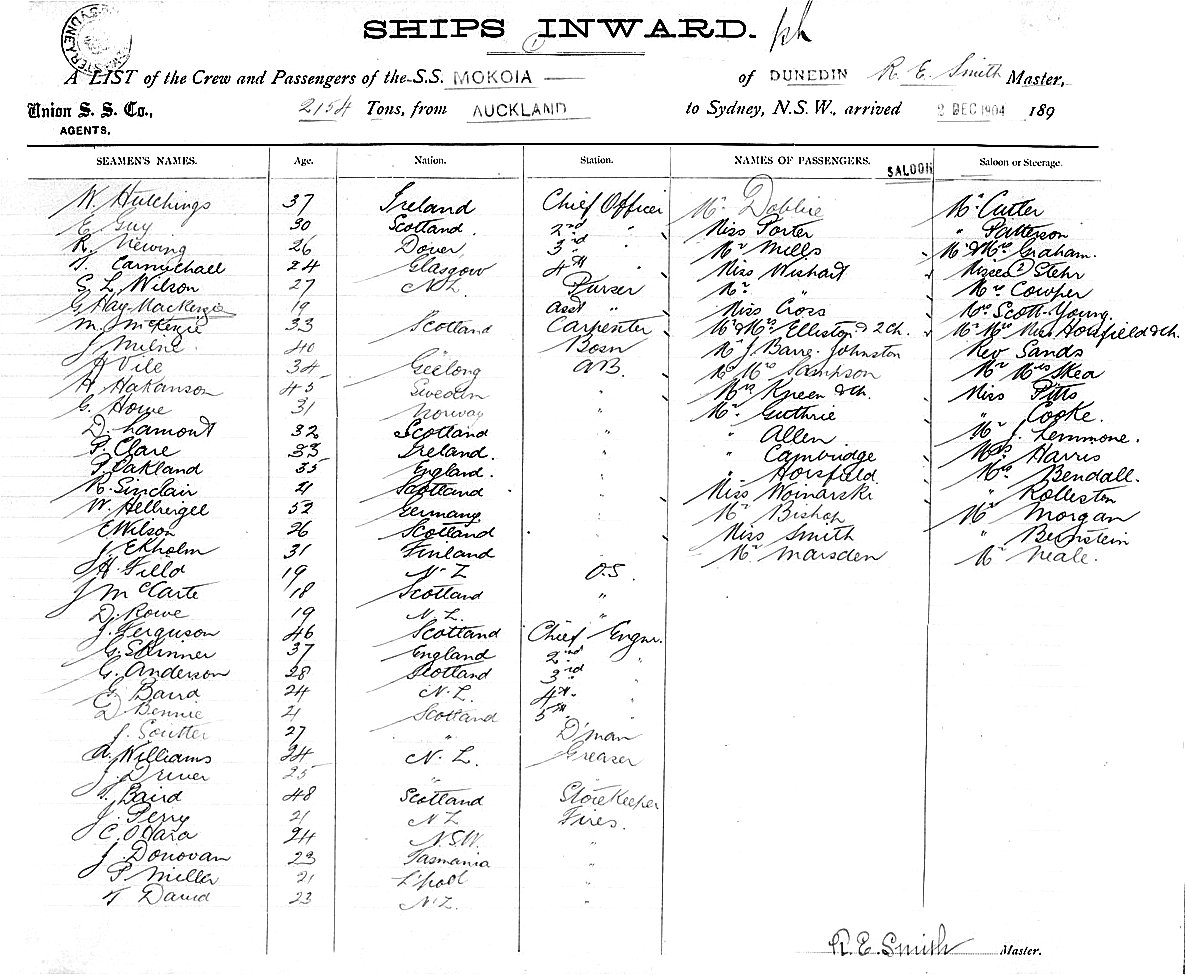 SHIPS INWARD.
A LIST of the Crew and Passengers of the S.S. MOKOIA of DUNEDIN R. E. Smith Master,
Union S. S. Co., 2154 Tons, from AUCKLAND to Sydney, N.S.W., arrived 2 DEC 1904 189
AGENTS,
SEAMEN'S NAMES. Age. Nation. Station. NAMES OF PASSENGERS. SALOON Saloon or Steerage.
W. Hutchings 37 Ireland Chief Officer Mr. Dobbie Mr. Cutter
E. Guy 30 Scotland 2nd " Miss Porter " Patterson
R. Newing 26 Dover 3rd Mr Mills Mr & Mrs Graham.
T. Carmichael 24 Glasgow 4th " Miss Wishart Stehr
S. L. Wilson 27 N.Z. Purser Mr. " Cowper
G. Hay-MacKenzie 19 asst " Miss Cross Scott-Young.
M. McKenzie 33 Scotland Carpenter Mr & Mrs Elliston & 2 Ch. Mr Mrs Miss Horsfield & ch.
J. Milne 40 Bosn Mr J. Barre-Johnston Rev Sands
A Vile 34 Geelong A.B. Mr Mrs Sampson Mr Mrs Skea
H. Hakanson 45 Sweden " Mrs Kneen & ch. Miss Pitts
G. Howe 31 Norway " Mr. Guthrie " Cooke.
D. Lamont 32 Scotland " " Allen Mr J. Lemmone.
P. Clare 33 Ireland. " " Cambridge Harris
Oakland 35 England. " " Horsfield. Mrs Bendall.
R. Sinclair 21 Scotland " Miss Womarski " Rolleston
W. Hellriegel 52 Germany " Mr. Bishop Mr Morgan
E Wilson 26 Scotland " Miss Smith " Bernstein
J. Ekholm 31 Finland " Mr Marsden Mr Neale.
H. Field 19 N.Z O.S.
J McClarte 18 Scotland "
D. Rowe 19 N.Z. "
J. Ferguson 46 Scotland Chief Engnr.
G. Skinner 37 England 2nd "
G. Anderson 28 Scotland 3rd "
G Baird 24 N.Z. 4th "
D. Bennie 21 Scotland 5th "
J. Soutter 27 " D'man
A. Williams 24 N.Z. Greaser
J. Driver 25 "
T. Baird 48 Scotland Storekeeper
J. Perry 21 NZ Fires.
C. OHara 24 N.S.W. "
J. Donovan 23 Tasmania "
P. Miller 21 L'pool "
T David 23 N.Z. "
R. E. Smith Master.